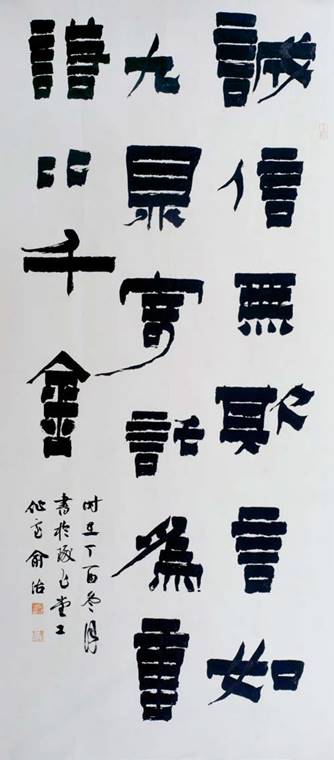 誠信無欺言如
九鼎寄託為重
諾比千金
时在丁酉冬月
書於堂工
作室俞治